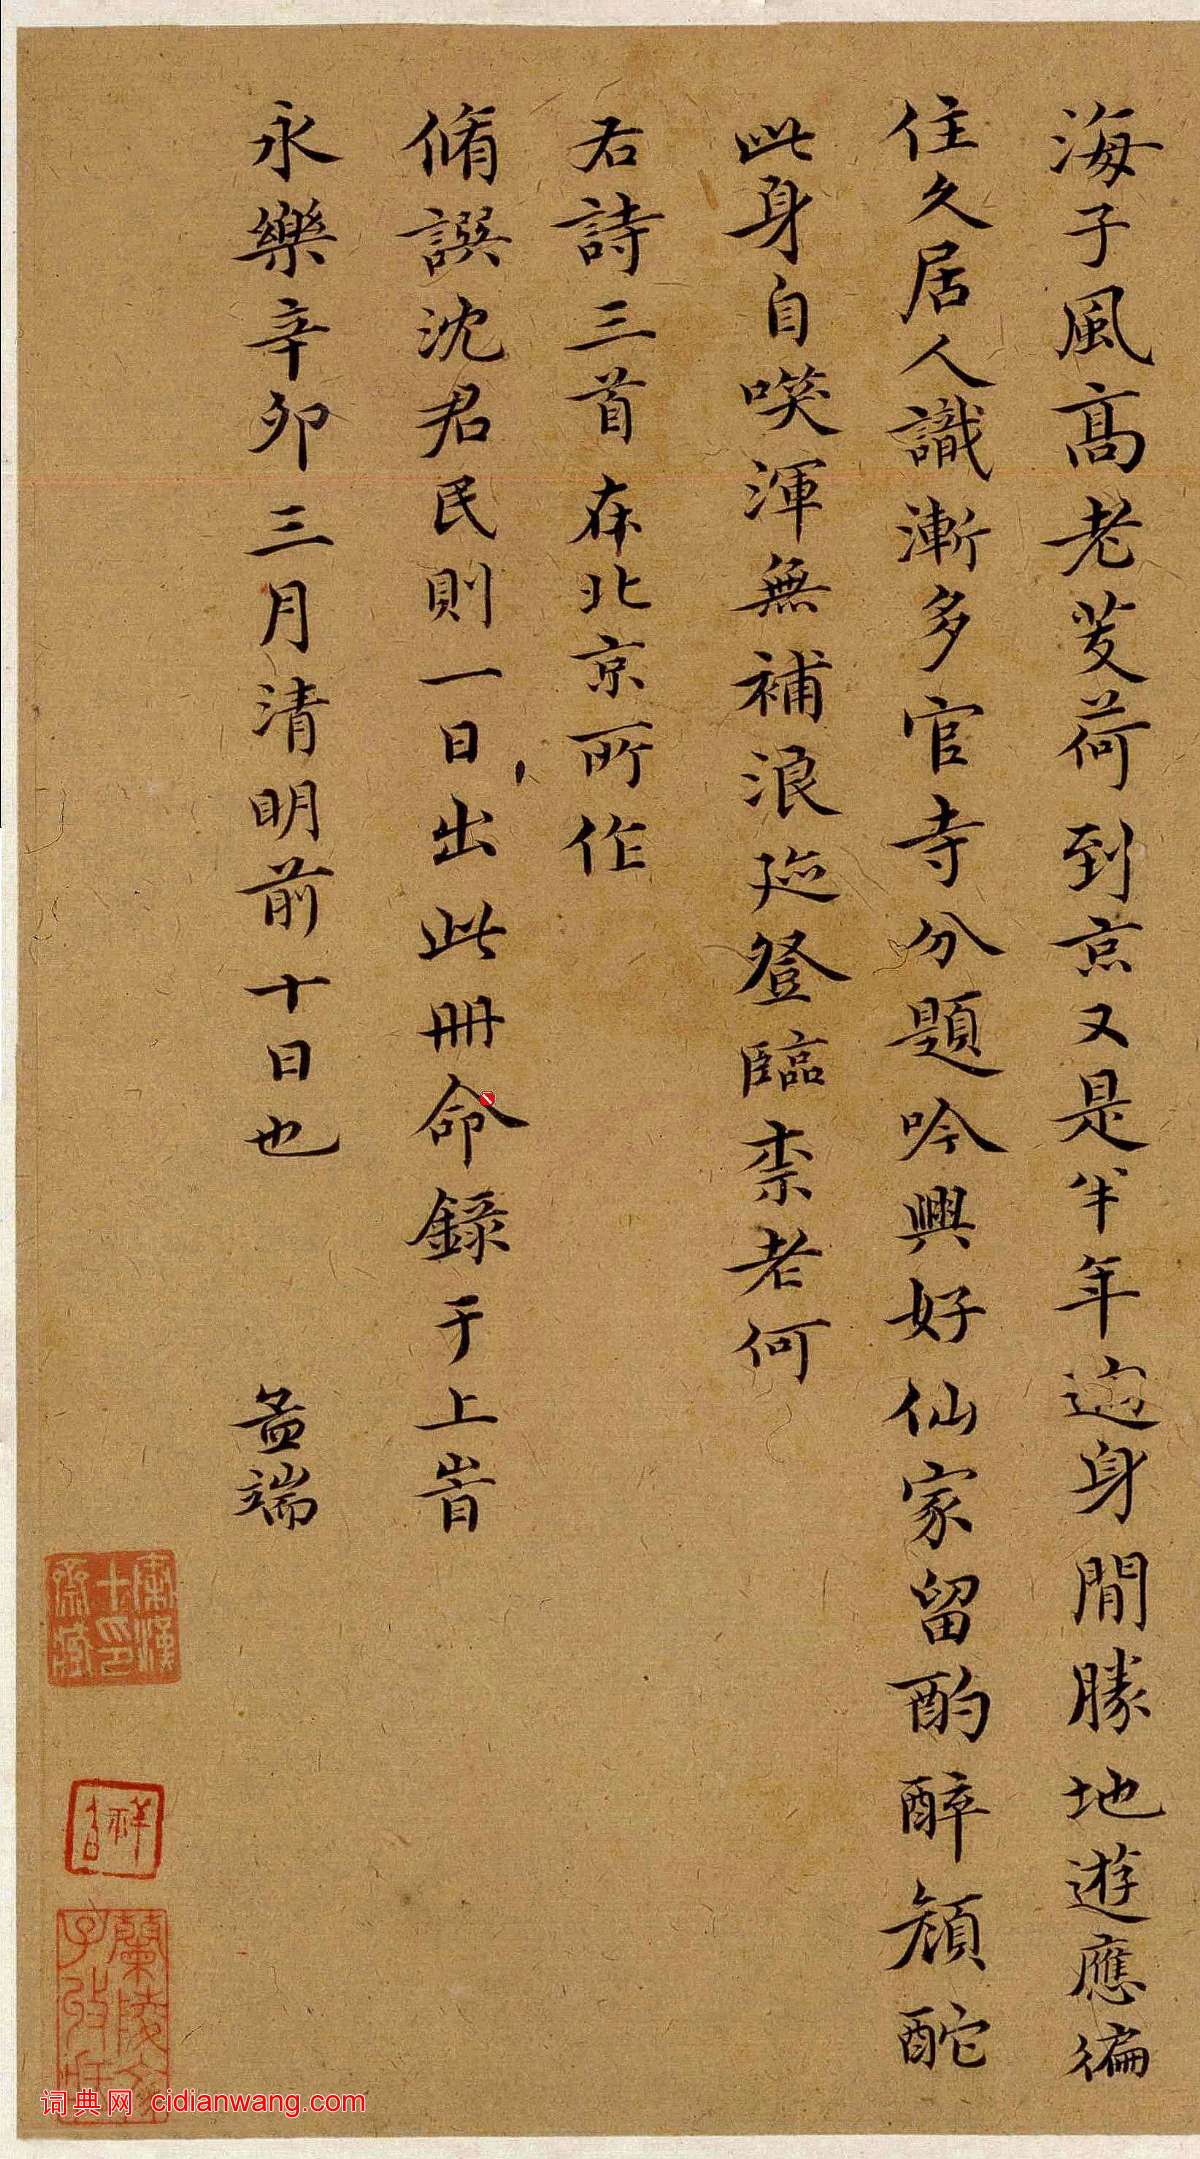 海子風髙老芰荷到京又是半年過身閒勝地遊應徧
住久居人識漸多官寺分題吟興好仙家留酌醉顔酡
此身自唉渾無補浪迹登臨柰老何
右詩三首在北京所作
脩譔沈君民則一日出此冊命錄于上昔
永樂辛卯三月清明前十日也
孟端
祥
蘭陵
词典网 cidianwang.com